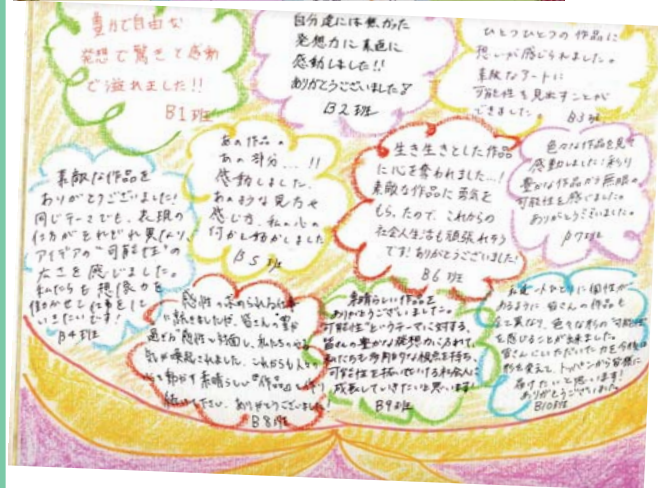 豊かで自由な
発想で驚きと感動
で溢れました!!
B1班
自分達には無かった
発想力に素直に
感動しました!!
ありがとうございました
B2班
ひとつひとつの作品に
想いが感じられました。
素敵なアートに
可能性を見出すことが
できました。 B3班
素敵な作品を
ありがとうございました!
同じテーマでも、表現の
仕方がそれぞれ異なり、
アイデアの"可能性"の
大きさを感じました。
私たちも想像力を
働かせて仕事をして
いきたいです!
B4班
あの作品の
あの部分...!!
感動しました。
あのような見方や
感じ方、私の心の
何かが動かしました
B5班
生き生きとした作品
に心を奪われました...!
素敵な作品に勇気を
もらったので、これからの
社会人生活も頑張れそう
です!ありがとうございました!
B6班
色々な作品を見て
感動しました!彩り
豊かな作品から無限の
可能性を感じました
ありがとうございました。
B7班
感性の求められる仕事
に就きましたが、皆さんの
感性に対面し、私たちの
が喚起されました。これからも人の
動かす素晴らしい"作品"を
下さい。ありがとうございました!
B8班
素晴らしい作品を
ありがとうございました。
"可能性"というテーマに対する、
皆さんの豊かな発想力にふれて、
私たちも多角的な視点を持ち、
可能性を描いせいける社会人に
成長していきたいと思います!
B9班
一人ひとりに個性が
あるように皆さんの作品も
異なり、色々な形の"可能性"
を感じることが出来ました。
皆さんにいただいた力を今後は
形を変えて、トッパンから皆様に
届けたいと思います!
ありがとうございました。
B10班